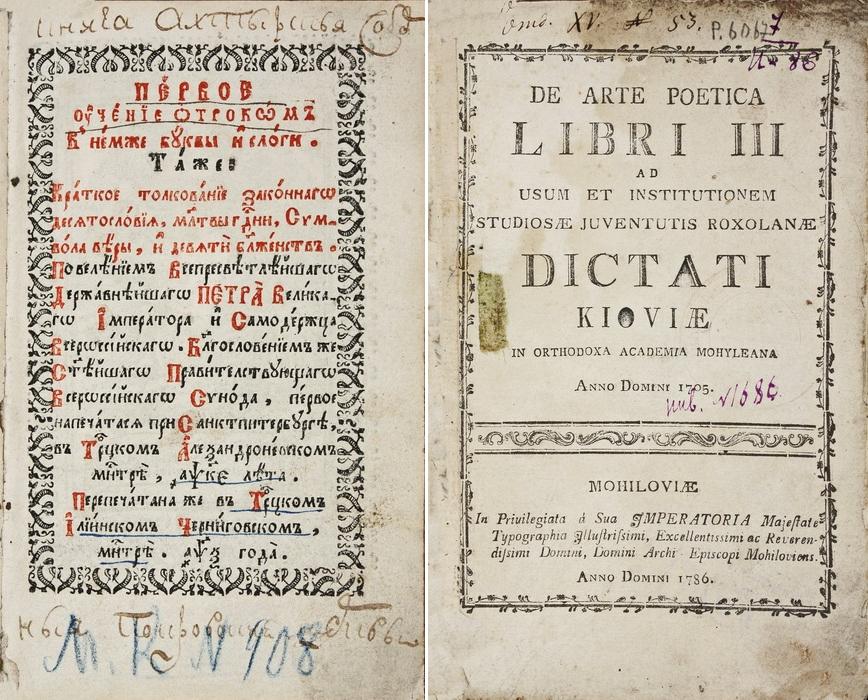 ПЕ́РВОЕ
ѹ҆че́нїе ѻ҆трокѡ́мъ
В̾ не́мже бꙋ́квы и҆ сло́ги .
Та́же :
Кра́ткое толкова́нїе Зако́ннагѡ
десѧтосло́вїѧ, мл҃твы гдⷭ҇ни, Сѵм-
во́ла вѣ́ры , и҆ девѧтѝ бл҃же́нствъ .
Повелѣ́нїемъ Всепресвѣтлѣ́йшагѡ
Держа́внѣйшагѡ ПЕТРА̀ Вели́ка-
гѡ І҆мпера́тора и҆ Самоде́ржца
Всерѡссі́йскагѡ . Бл҃гослове́нїемъ же
Ст҃ѣ́йшагѡ Прави́телствꙋющагѡ
Всерѡссі́йскагѡ Сѵно́да , пе́рвое
напеча́тасѧ при Санктпитербꙋ́ргѣ ,
въ Трⷪ҇цкомъ А҆леѯандроне́вскомъ
мⷭ҇трѣ̀ , аѱк҃е лѣ́та .
Перепеча́тана же въ Трⷪ҇цкомъ
І҆лїи́нскомъ Черни́говскомъ ,
мⷭ҇трѣ̀ . аѱ҃ѯ го́да .
М. К. N 908
XV. N 53.
P. 6067
DE ARTE POETICA
LIBRI III
AD
USUM ET INSTITUTIONEM
STUDIOSÆ JUVENTUTIS ROXOLANÆ
DICTATI
KIOVIÆ
IN ORTHODOXA ACADEMIA MOHYLEANA
ANNO DOMINI 1705.
инв. №1686
MOHILOVIÆ
In Privilegiata á Sua IMPERATORIA Majestate
Typographia Illustrissimi, Excellentissimi ac Reveren-
dissimi Domini, Domini Archi-Episcopi Mohiloviens.
ANNO DOMINI 1786.